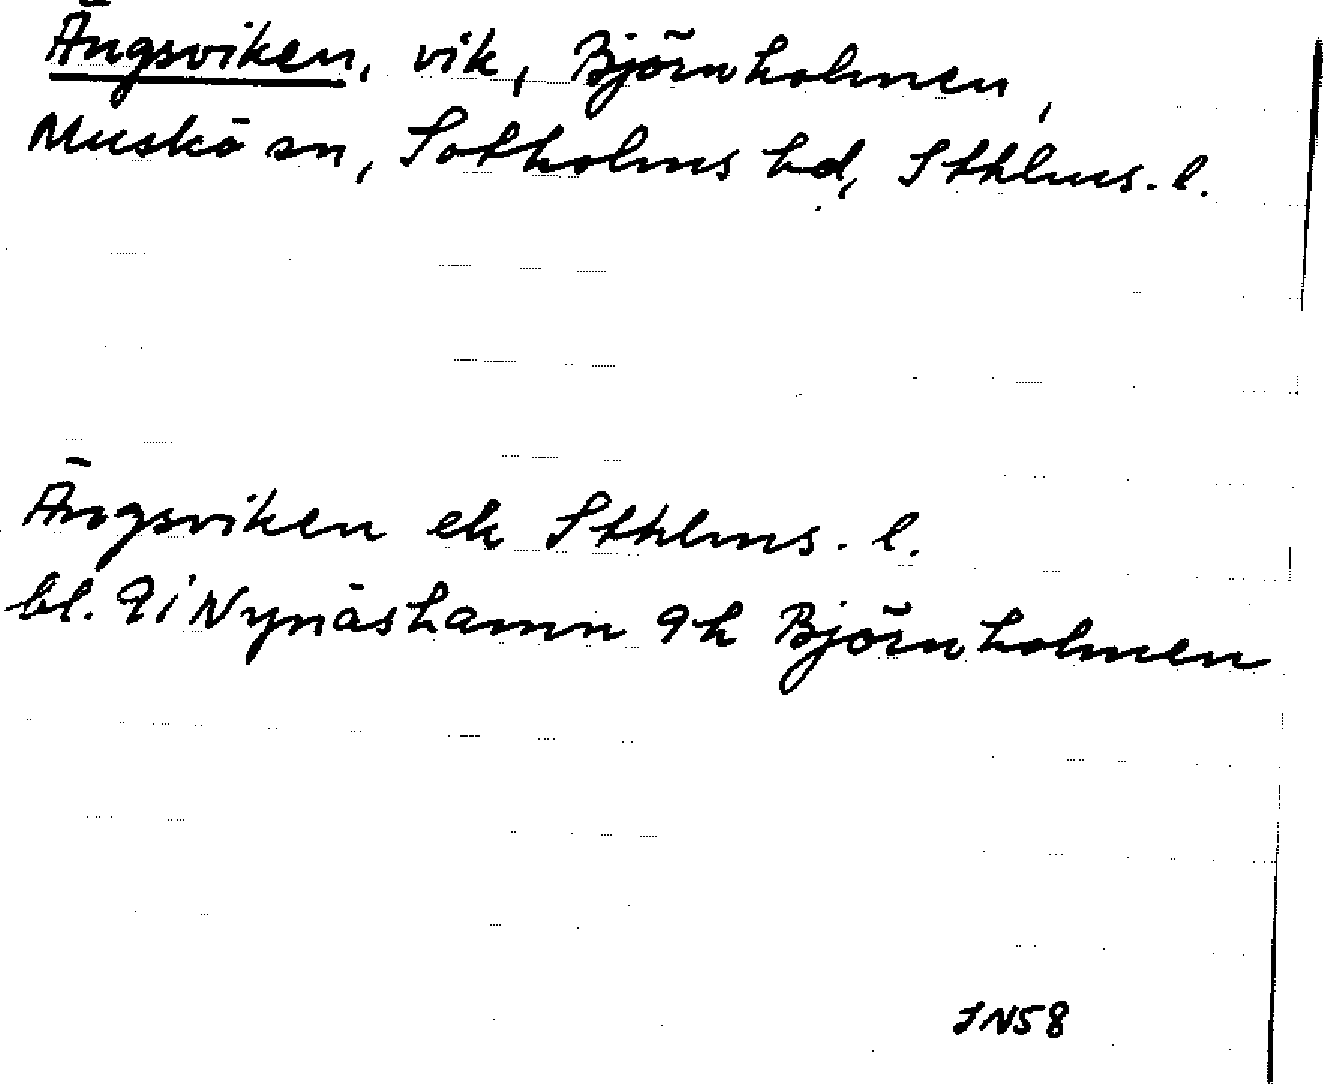 Ängsviken, vik, Björnholmen,
Muskö sn, Sotholms hd, Sthlms. l.
Ängsviken ek Sthlms. l.
bl. 9i Nynäshamn 9h Björnholmen
JN58